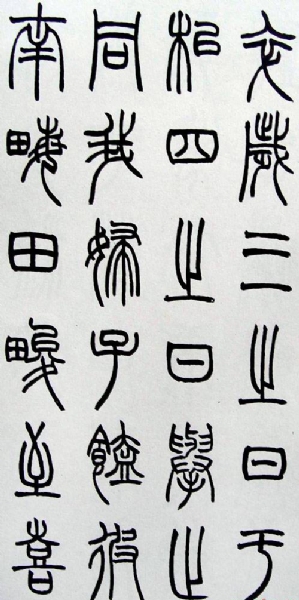 卒歲三之日于
耜四之日舉止
同我婦子饁彼
南畮田畯至喜